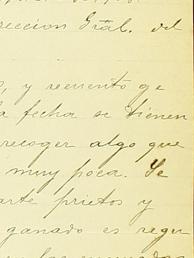 reccion Gral. del
s, y recuento ge
la fecha se tienen
recoger algo que
muy poca. Se
arte prietos y
ganado es regu